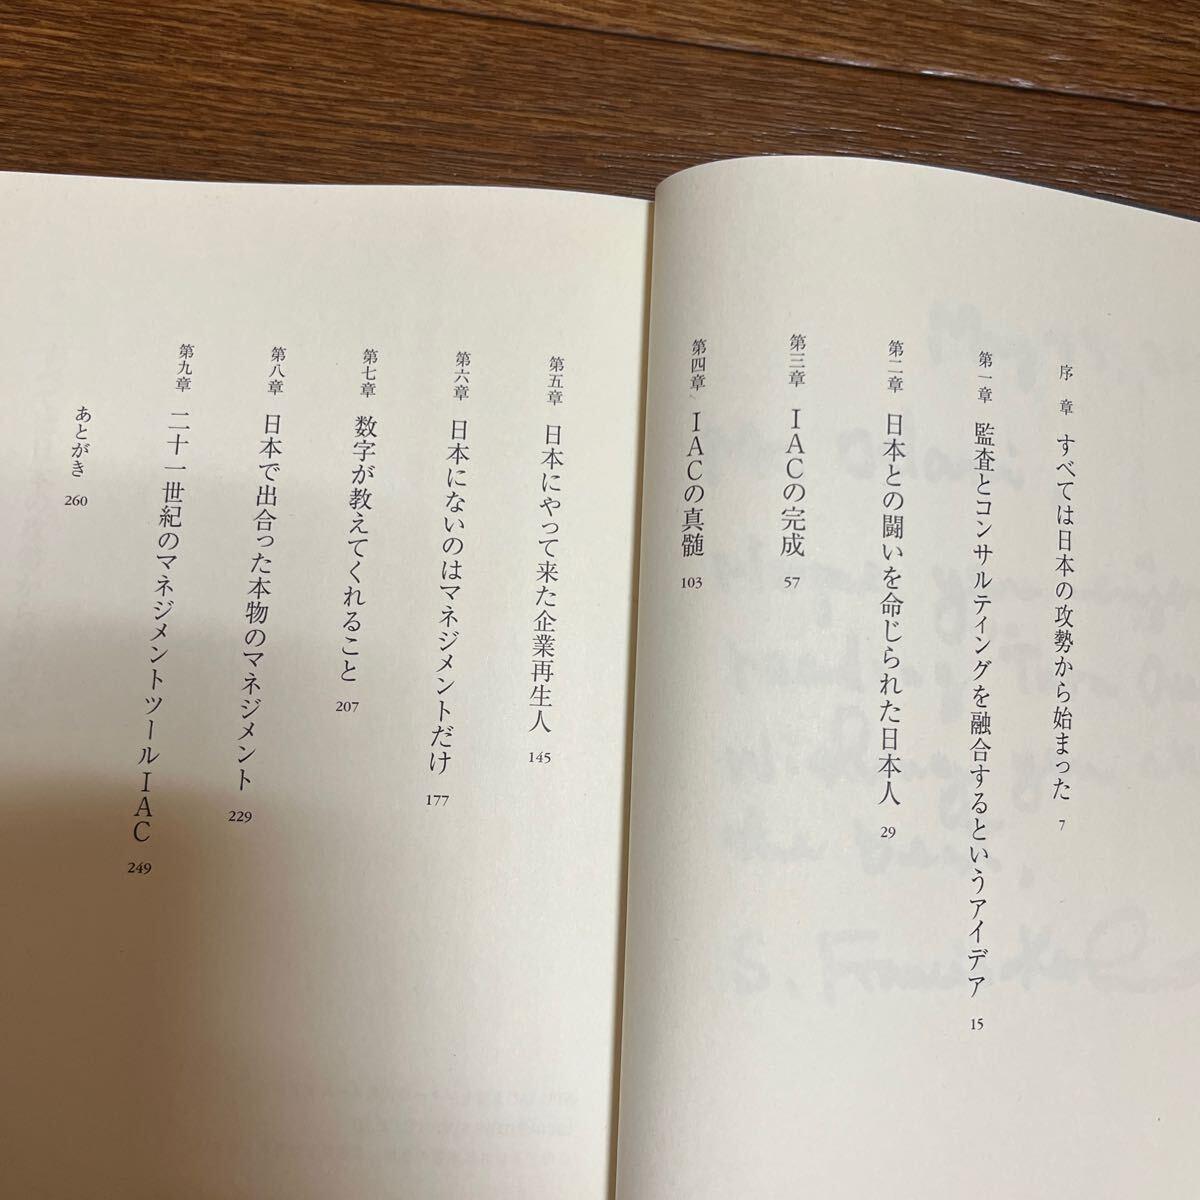 序章 すべては日本の攻勢から始まった 7
第一章 監査とコンサルティングを融合するというアイデア 15
第二章 日本との闘いを命じられた日本人 29
第三章 IACの完成 57
第四章 IACの真髄 103
第五章 日本にやって来た企業再生人 145
第六章 日本にないのはマネジメントだけ 177
第七章 数字が教えてくれること 207
第八章 日本で出合った本物のマネジメント 229
第九章 二十一世紀のマネジメントツールIAC 249
あとがき 260